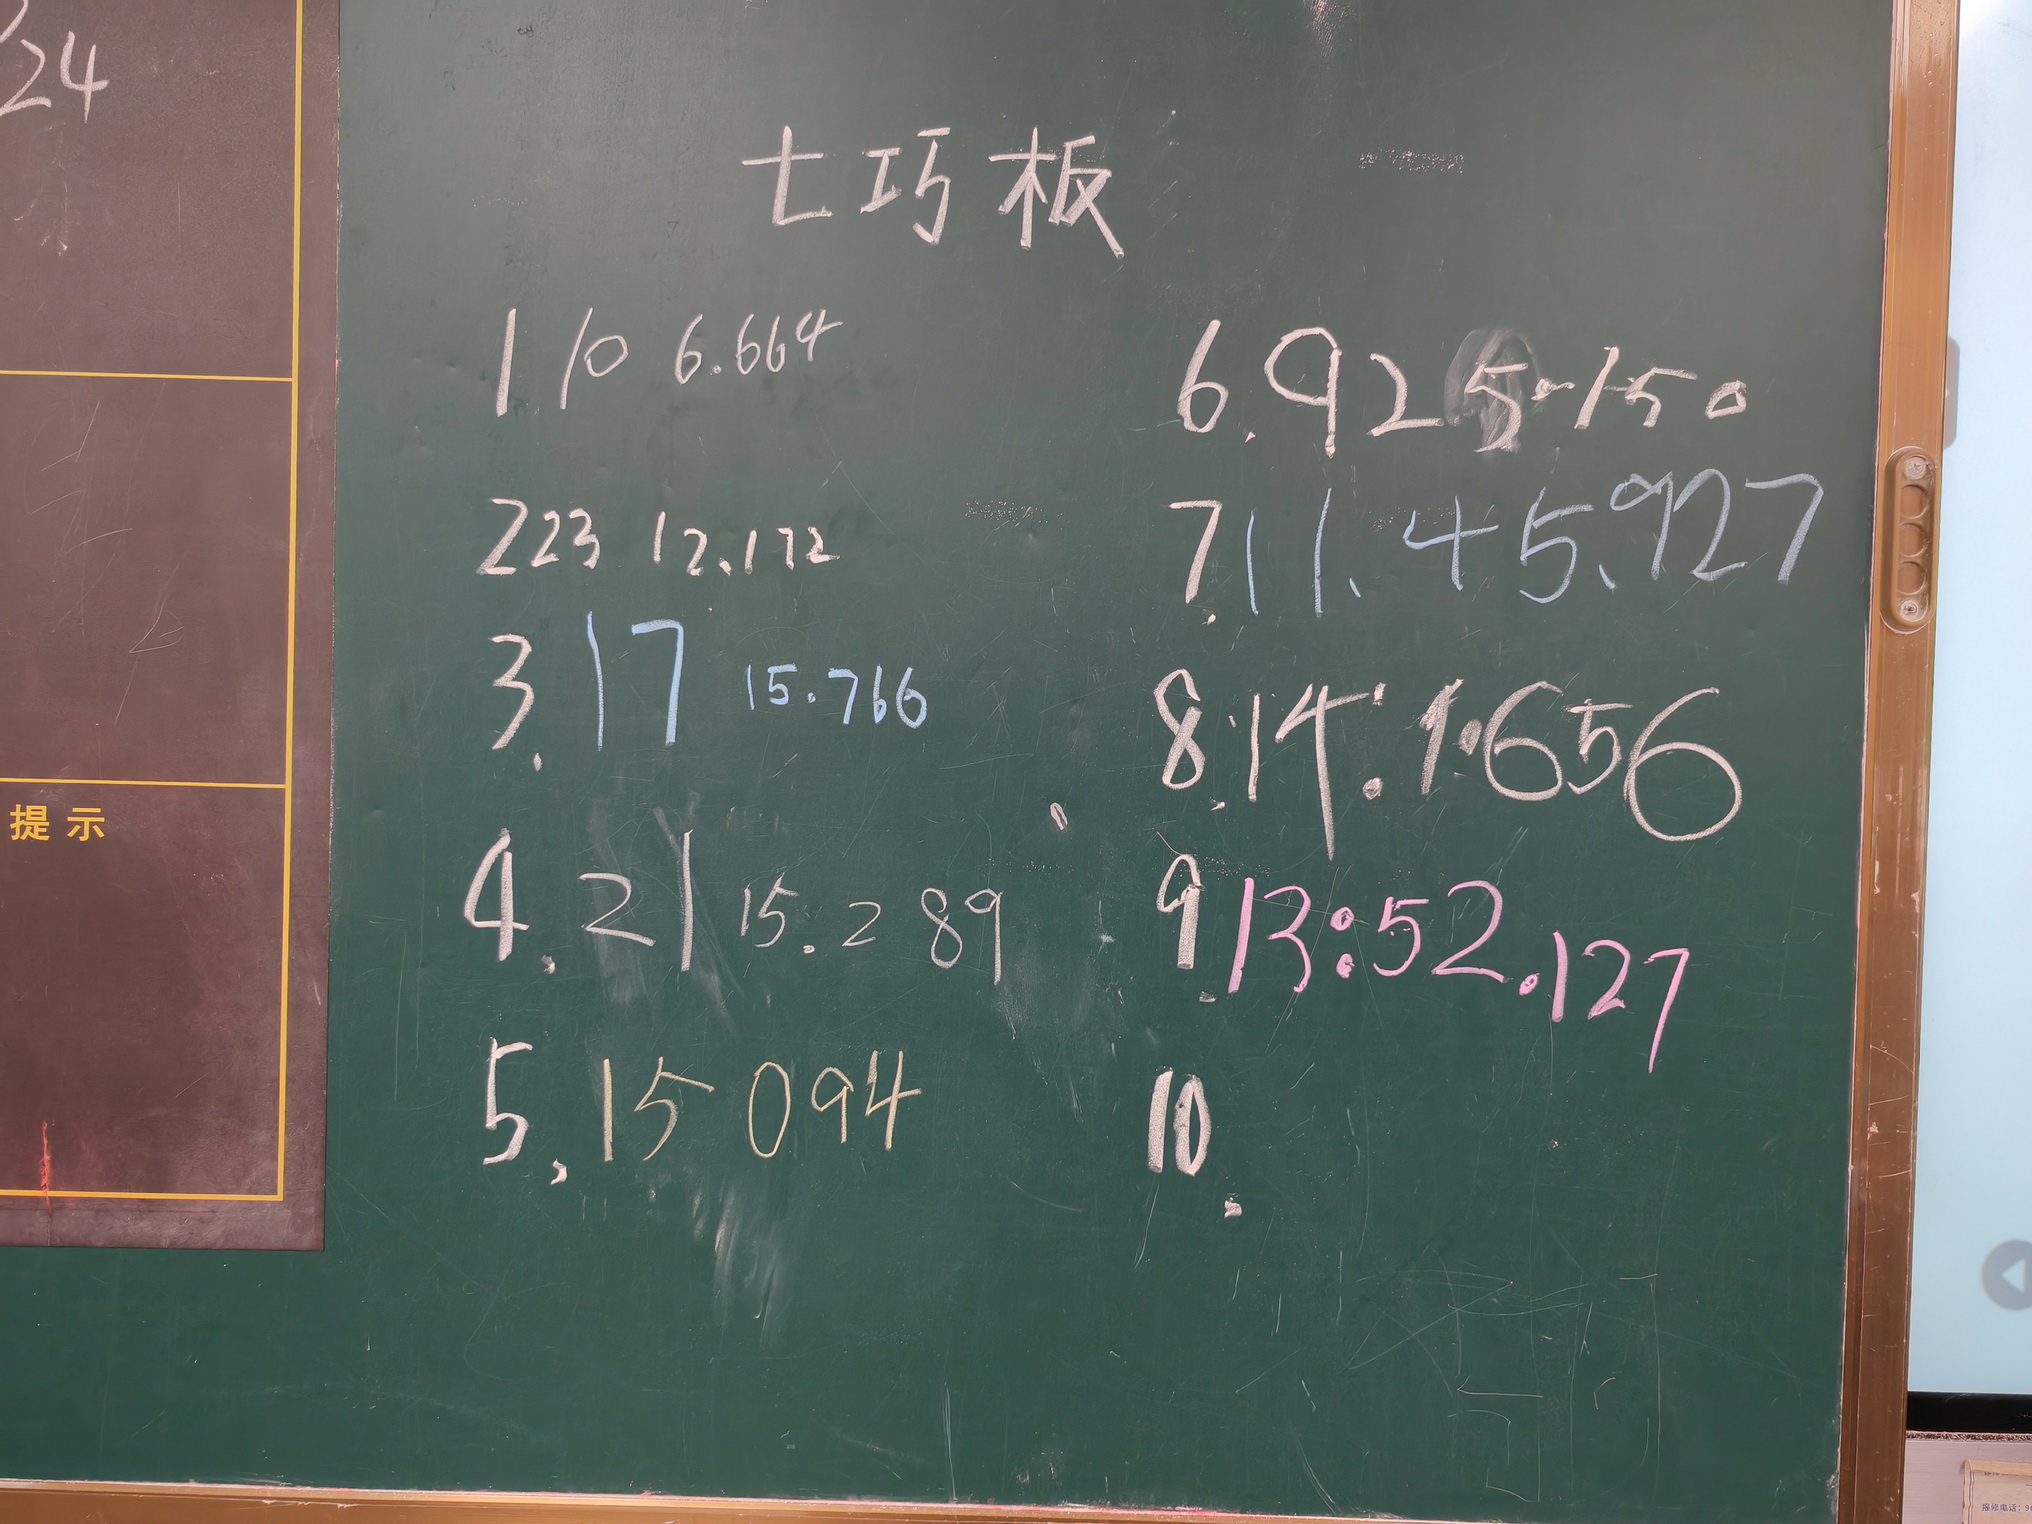 24
七巧板
1 10 6.664
2 23 12.172
3. 17 15.766
4. 21 15.289
5. 15 094
6. 9 25.150
7. 11. 45.927
8. 14: 1.656
9. 13:52.127
10.
提示
报修电话: